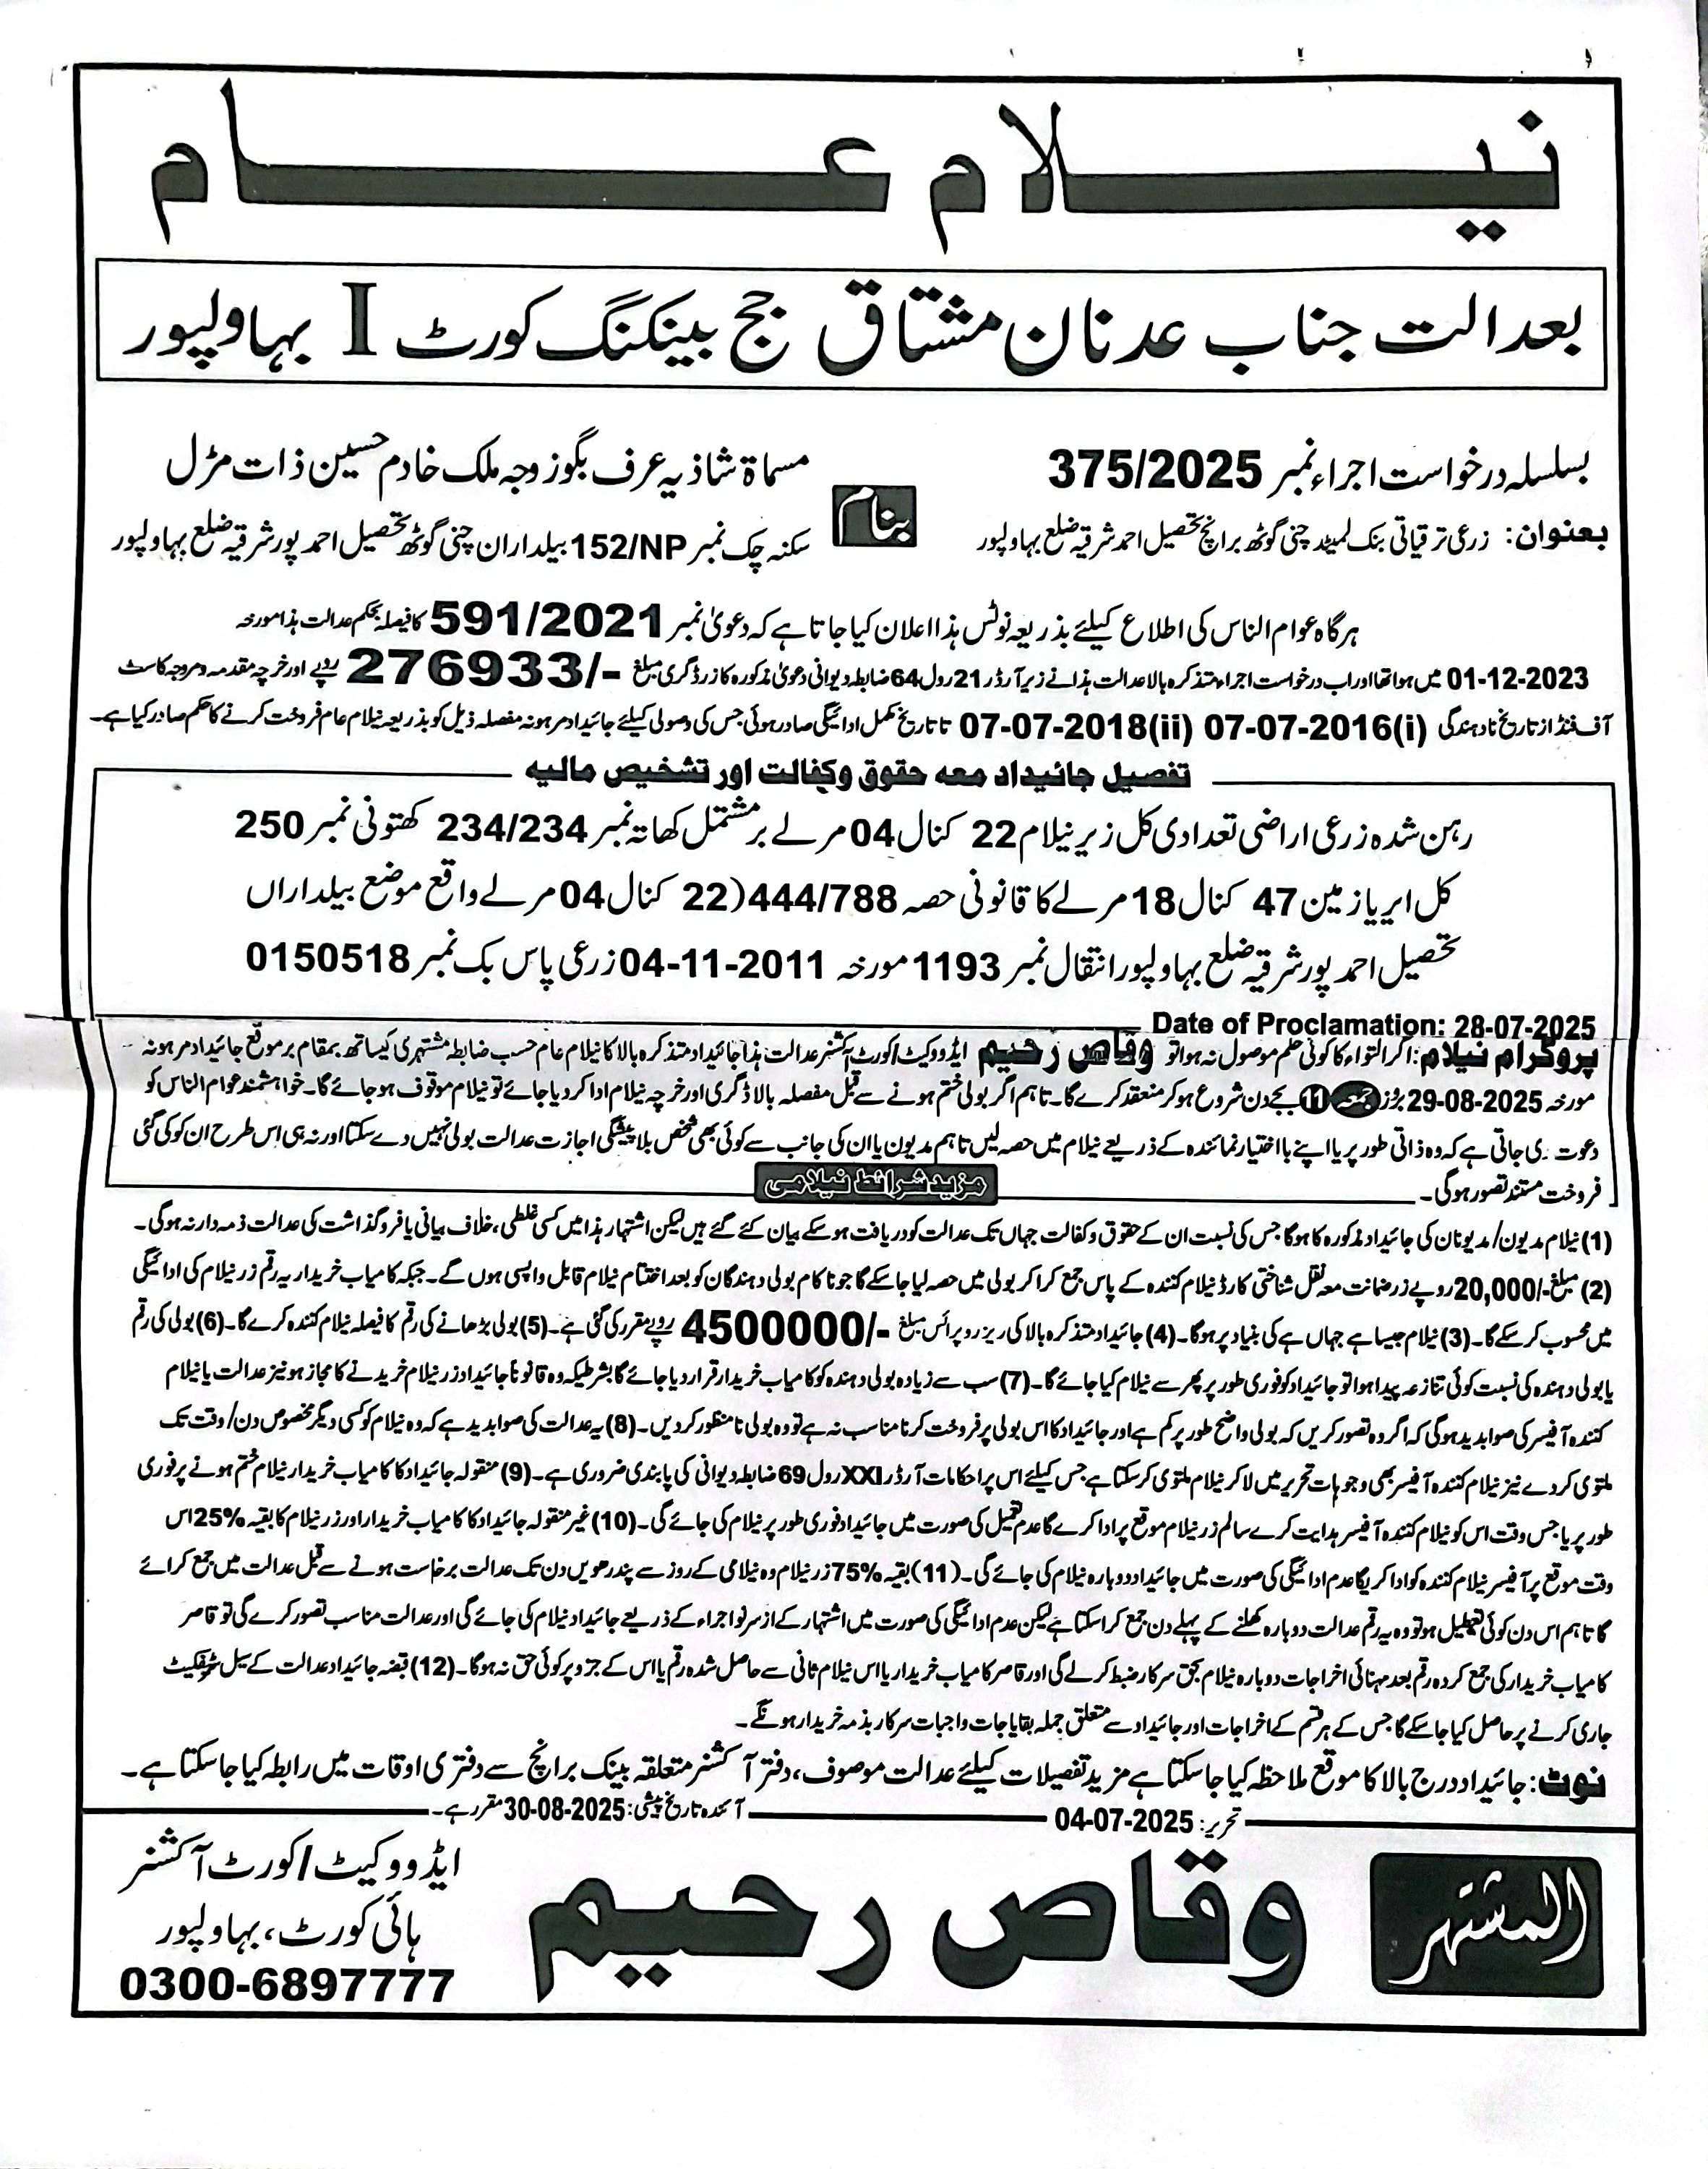 نیلام عام
بعدالت جناب عدنان مشتاق جج بینکنگ کورٹ I بہاولپور
بسلسلہ درخواست اجراء نمبر 375/2025
بعنوان: زرعی ترقیاتی بنک لمیٹڈ چنی گوٹھ برانچ تحصیل احمد شرقیہ ضلع بہاولپور
بنام
مسماۃ شاذیہ عرف بگو زوجہ ملک خادم حسین ذات مڑل
سکنہ چک نمبر 152/NP بیلداران چنی گوٹھ تحصیل احمد پور شرقیہ ضلع بہاولپور
ہر گاہ عوام الناس کی اطلاع کیلئے بذریعہ نوٹس ہذا اعلان کیا جاتا ہے کہ دعویٰ نمبر 591/2021 کا فیصلہ بحکم عدالت ہذا مورخہ
01-12-2023 میں ہوا تھا اور اب درخواست اجراء متذکرہ بالا عدالت ہذا نے زیر آرڈر 21 رول 64 ضابطہ دیوانی دعویٰ مذکورہ کا زر ڈگری مبلغ -/276933 روپے اور خرچہ مقدمہ و مروجہ کاسٹ
آف فنڈ از تاریخ نادہندگی (i)07-07-2016 (ii)07-07-2018 تا تاریخ مکمل ادائیگی صادر ہوئی جس کی وصولی کیلئے جائیداد مرہونہ مفصلہ ذیل کو بذریعہ نیلام عام فروخت کرنے کا حکم صادر کیا ہے۔
تفصیل جائیداد معہ حقوق وکفالت اور تشخیص مالیہ
رہن شدہ زرعی اراضی تعدادی کل زیر نیلام 22 کنال 04 مرلے بر مشتمل کھاتہ نمبر 234/234 کھتونی نمبر 250
کل ایریا زمین 47 کنال 18 مرلے کا قانونی حصہ 444/788 (22 کنال 04 مرلے واقع موضع بیلداراں
تحصیل احمد پور شرقیہ ضلع بہاولپور انتقال نمبر 1193 مورخہ 04-11-2011 زرعی پاس بک نمبر 0150518
Date of Proclamation: 28-07-2025
پروگرام نیلام: اگر التواء کا کوئی حکم موصول نہ ہوا تو وقاص رحیم ایڈووکیٹ/کورٹ آکشنر عدالت ہذا جائیداد متذکرہ بالا کا نیلام عام حسب ضابطہ مشتہری کیساتھ بمقام بر موقع جائیداد مرہونہ
مورخہ 29-08-2025 بروز جمعہ 11 بجے دن شروع ہو کر منعقد کرے گا۔ تاہم اگر بولی ختم ہونے سے قبل مفصلہ بالا ڈگری اور خرچہ نیلام ادا کر دیا جائے تو نیلام موقوف ہو جائے گا۔ خواہشمند عوام الناس کو
دعوت دی جاتی ہے کہ وہ ذاتی طور پر یا اپنے با اختیار نمائندہ کے ذریعے نیلام میں حصہ لیں تاہم مدیون یا ان کی جانب سے کوئی بھی شخص بلا پیشگی اجازت عدالت بولی نہیں دے سکتا اور نہ ہی اس طرح ان کو کی گئی
فروخت مستند تصور ہو گی۔
مزید شرائط نیلامی
(1) نیلام مدیون/مدیونان کی جائیداد مذکورہ کا ہو گا جس کی نسبت ان کے حقوق و کفالت جہاں تک عدالت کو دریافت ہو سکے بیان کئے گئے ہیں لیکن اشتہار ہذا میں کسی غلطی، خلاف بیانی یا فروگذاشت کی عدالت ذمہ دار نہ ہو گی۔
(2) مبلغ -/20,000 روپے زر ضمانت معہ نقل شناختی کارڈ نیلام کنندہ کے پاس جمع کرا کر بولی میں حصہ لیا جا سکے گا جو ناکام بولی دہندگان کو بعد اختتام نیلام قابل واپسی ہوں گے۔ جبکہ کامیاب خریدار یہ رقم زر نیلام کی ادائیگی
میں محسوب کر سکے گا۔ (3) نیلام جیسا ہے جہاں ہے کی بنیاد پر ہو گا۔ (4) جائیداد متذکرہ بالا کی ریزرو پرائس مبلغ -/4500000 روپے مقرر کی گئی ہے۔ (5) بولی بڑھانے کی رقم کا فیصلہ نیلام کنندہ کرے گا۔ (6) بولی کی رقم
یا بولی دہندہ کی نسبت کوئی تنازعہ پیدا ہوا تو جائیداد کو فوری طور پر پھر سے نیلام کیا جائے گا۔ (7) سب سے زیادہ بولی دہندہ کو کامیاب خریدار قرار دیا جائے گا بشرطیکہ وہ قانوناً جائیداد زر نیلام خریدنے کا مجاز ہو نیز عدالت یا نیلام
کنندہ آفیسر کی صوابدید ہو گی کہ اگر وہ تصور کریں کہ بولی واضح طور پر کم ہے اور جائیداد کا اس بولی پر فروخت کرنا مناسب نہ ہے تو وہ بولی نامنظور کر دیں۔ (8) یہ عدالت کی صوابدید ہے کہ وہ نیلام کو کسی دیگر مخصوص دن/وقت تک
ملتوی کر دے نیز نیلام کنندہ آفیسر بھی وجوہات تحریر میں لا کر نیلام ملتوی کر سکتا ہے جس کیلئے اس پر احکامات آرڈر XXI رول 69 ضابطہ دیوانی کی پابندی ضروری ہے۔ (9) منقولہ جائیداد کا کامیاب خریدار نیلام ختم ہونے پر فوری
طور پر یا جس وقت اس کو نیلام کنندہ آفیسر ہدایت کرے سالم زر نیلام موقع پر ادا کرے گا عدم تعمیل کی صورت میں جائیداد فوری طور پر نیلام کی جائے گی۔ (10) غیر منقولہ جائیداد کا کامیاب خریدار اور زر نیلام کا بقیہ 25% اس
وقت موقع پر آفیسر نیلام کنندہ کو ادا کریگا عدم ادائیگی کی صورت میں جائیداد دوبارہ نیلام کی جائے گی۔ (11) بقیہ 75% زر نیلام وہ نیلامی کے روز سے پندرھویں دن تک عدالت برخاست ہونے سے قبل عدالت میں جمع کرائے
گا تاہم اس دن کوئی تعطیل ہو تو وہ یہ رقم عدالت دوبارہ کھلنے کے پہلے دن جمع کرا سکتا ہے لیکن عدم ادائیگی کی صورت میں اشتہار کے از سر نو اجراء کے ذریعے جائیداد نیلام کی جائے گی اور عدالت مناسب تصور کرے گی تو قاصر
کامیاب خریدار کی جمع کردہ رقم بعد منہائی اخراجات دوبارہ نیلام بحق سرکار ضبط کر لے گی اور قاصر کامیاب خریدار یا اس نیلام ثانی سے حاصل شدہ رقم یا اس کے جزو پر کوئی حق نہ ہو گا۔ (12) قبضہ جائیداد عدالت کے سیل سرٹیفکیٹ
جاری کرنے پر حاصل کیا جا سکے گا جس کے ہر قسم کے اخراجات اور جائیداد سے متعلق جملہ بقایا جات واجبات سرکار بذمہ خریدار ہونگے۔
نوٹ: جائیداد درج بالا کا موقع ملاحظہ کیا جا سکتا ہے مزید تفصیلات کیلئے عدالت موصوف، دفتر آکشنر متعلقہ بینک برانچ سے دفتری اوقات میں رابطہ کیا جا سکتا ہے۔
تحریر: 04-07-2025
آئندہ تاریخ پیشی: 30-08-2025 مقرر ہے۔
المشتہر
وقاص رحیم
ایڈووکیٹ/کورٹ آکشنر
ہائی کورٹ، بہاولپور
0300-6897777